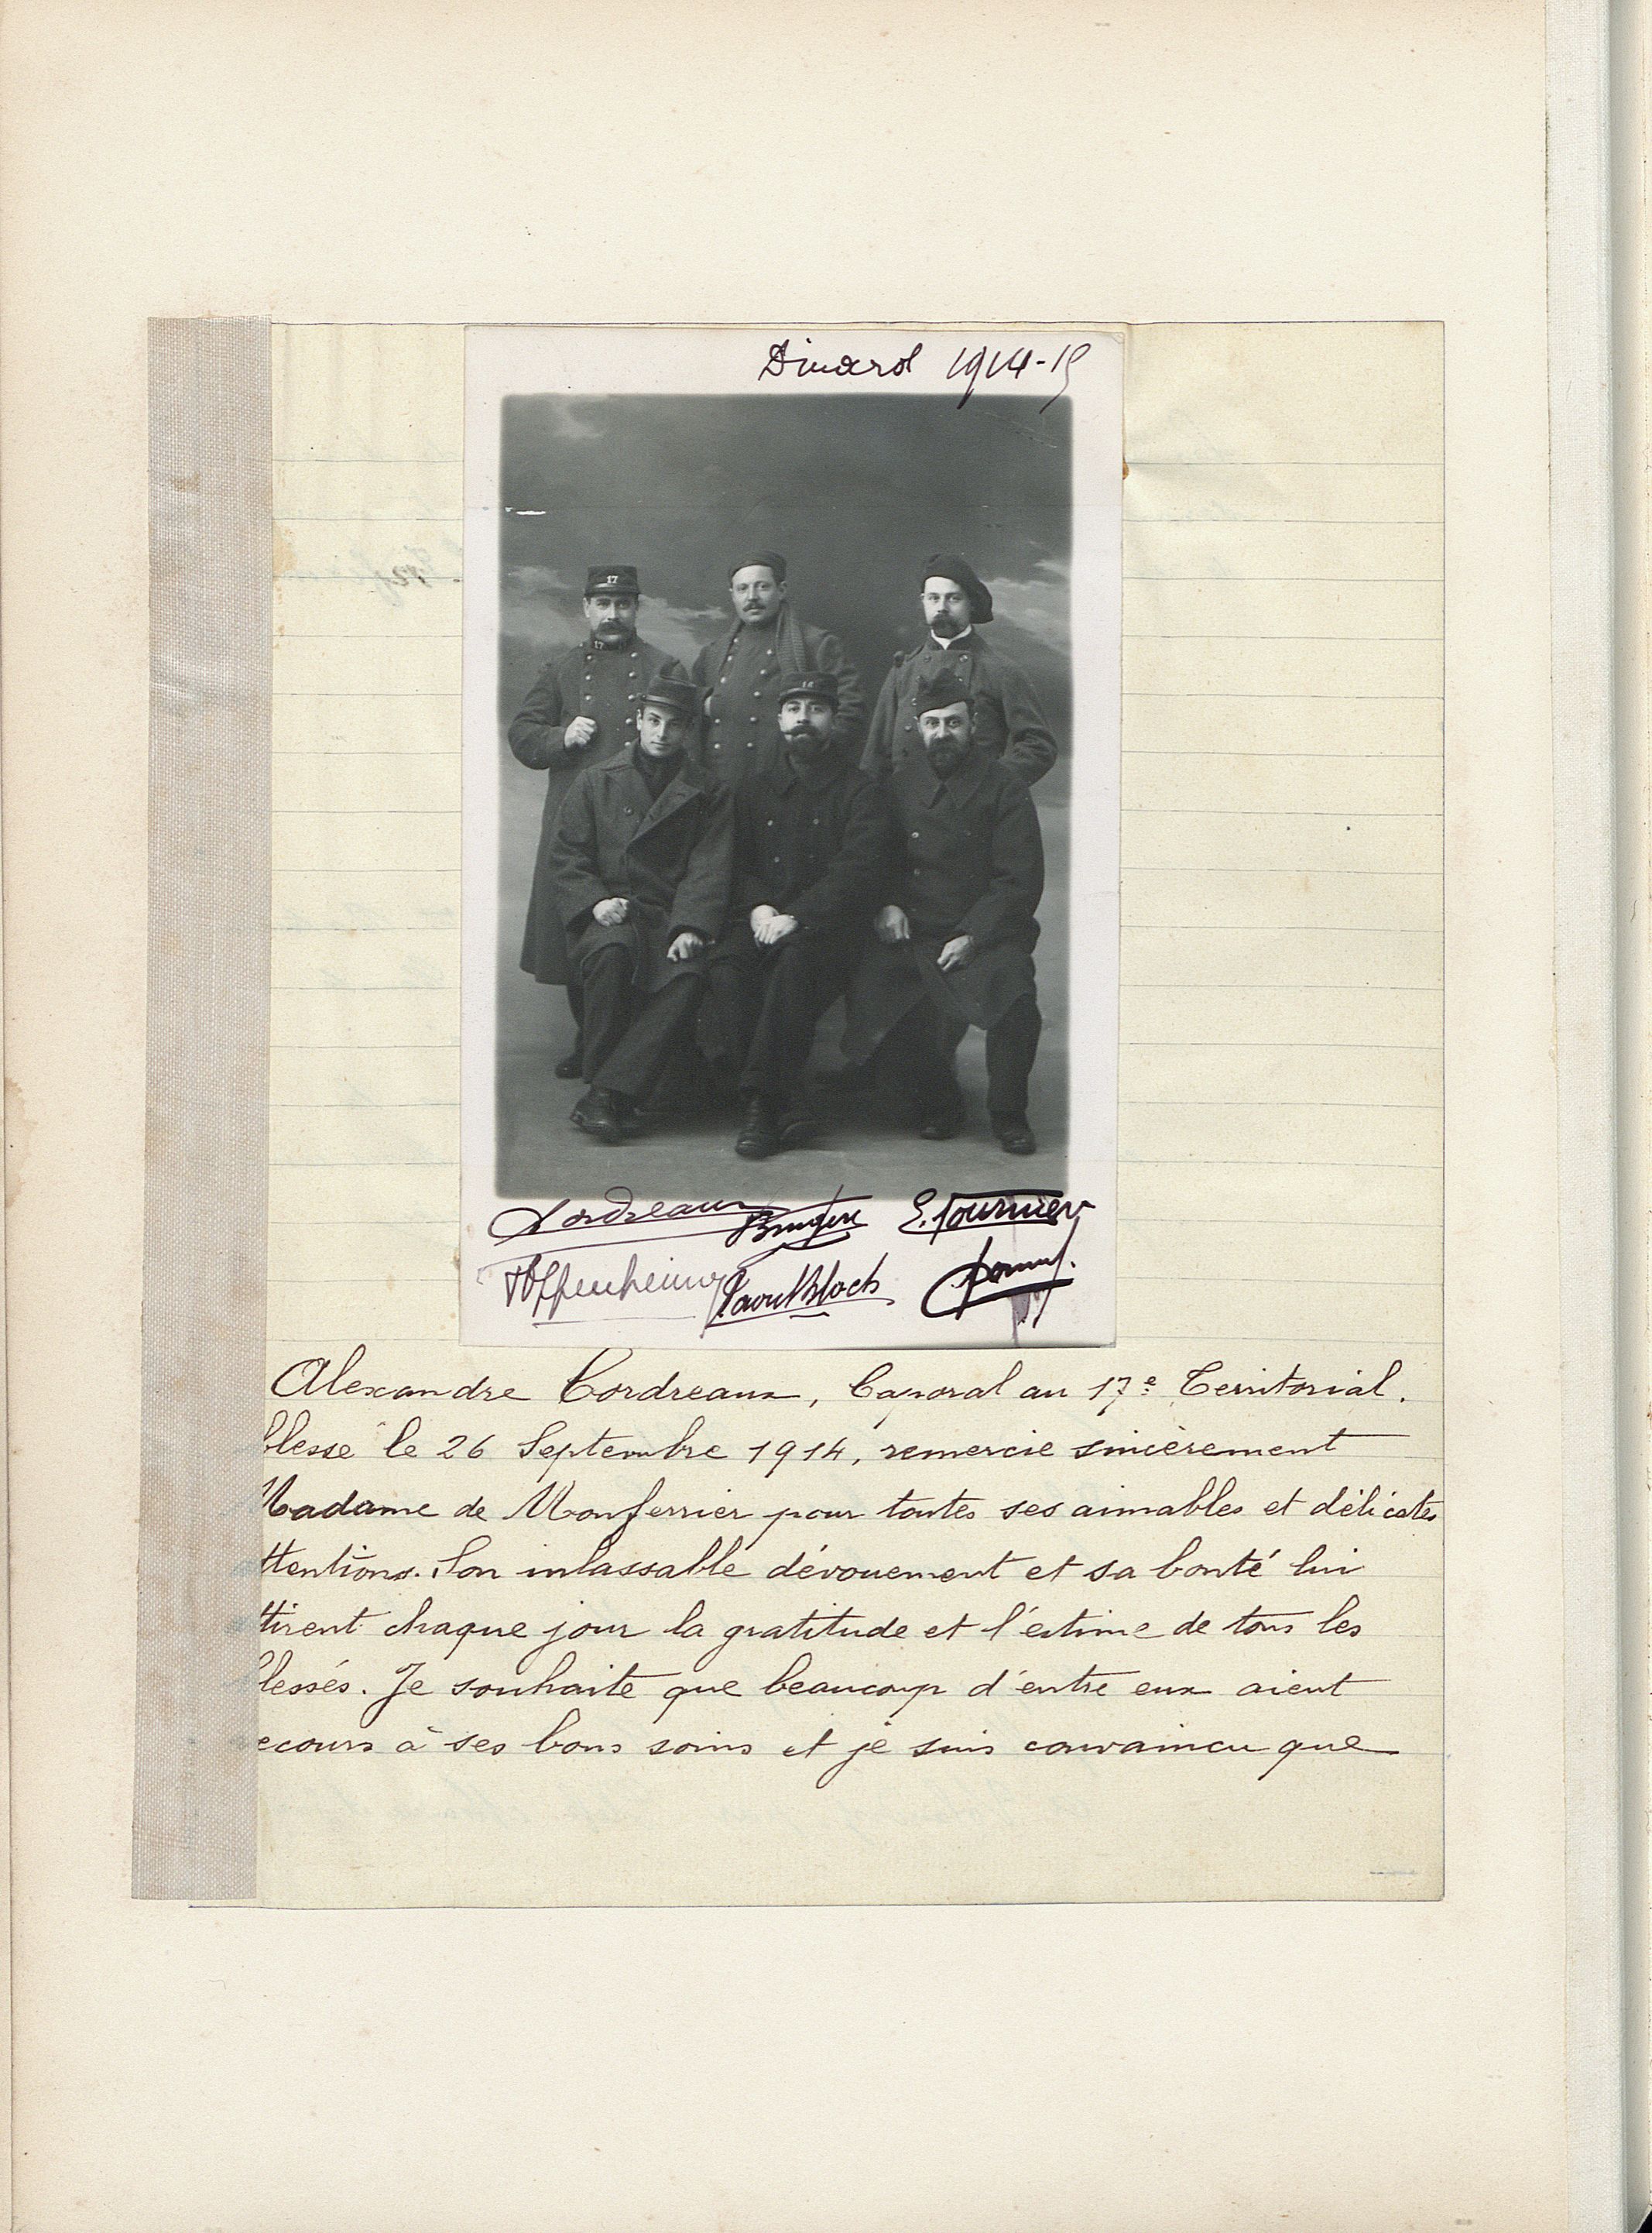 Dinard 1914-15
17
17
Cordreaux Bruyère E. Fournier
Oppenheimer Raoul Bloch
Alexandre Cordreaux, Caporal au 17e Territorial.
blessé le 26 Septembre 1914, remercie sincèrement
Madame de Monferrier pour toutes ses aimables et délicates
ttentions. Son inlassable dévouement et sa bonté lui
ttirent chaque jour la gratitude et l'estime de tous les
lessés. Je souhaite que beaucoup d'entre eux aient
ecours à ses bons soins et je suis convaincu que